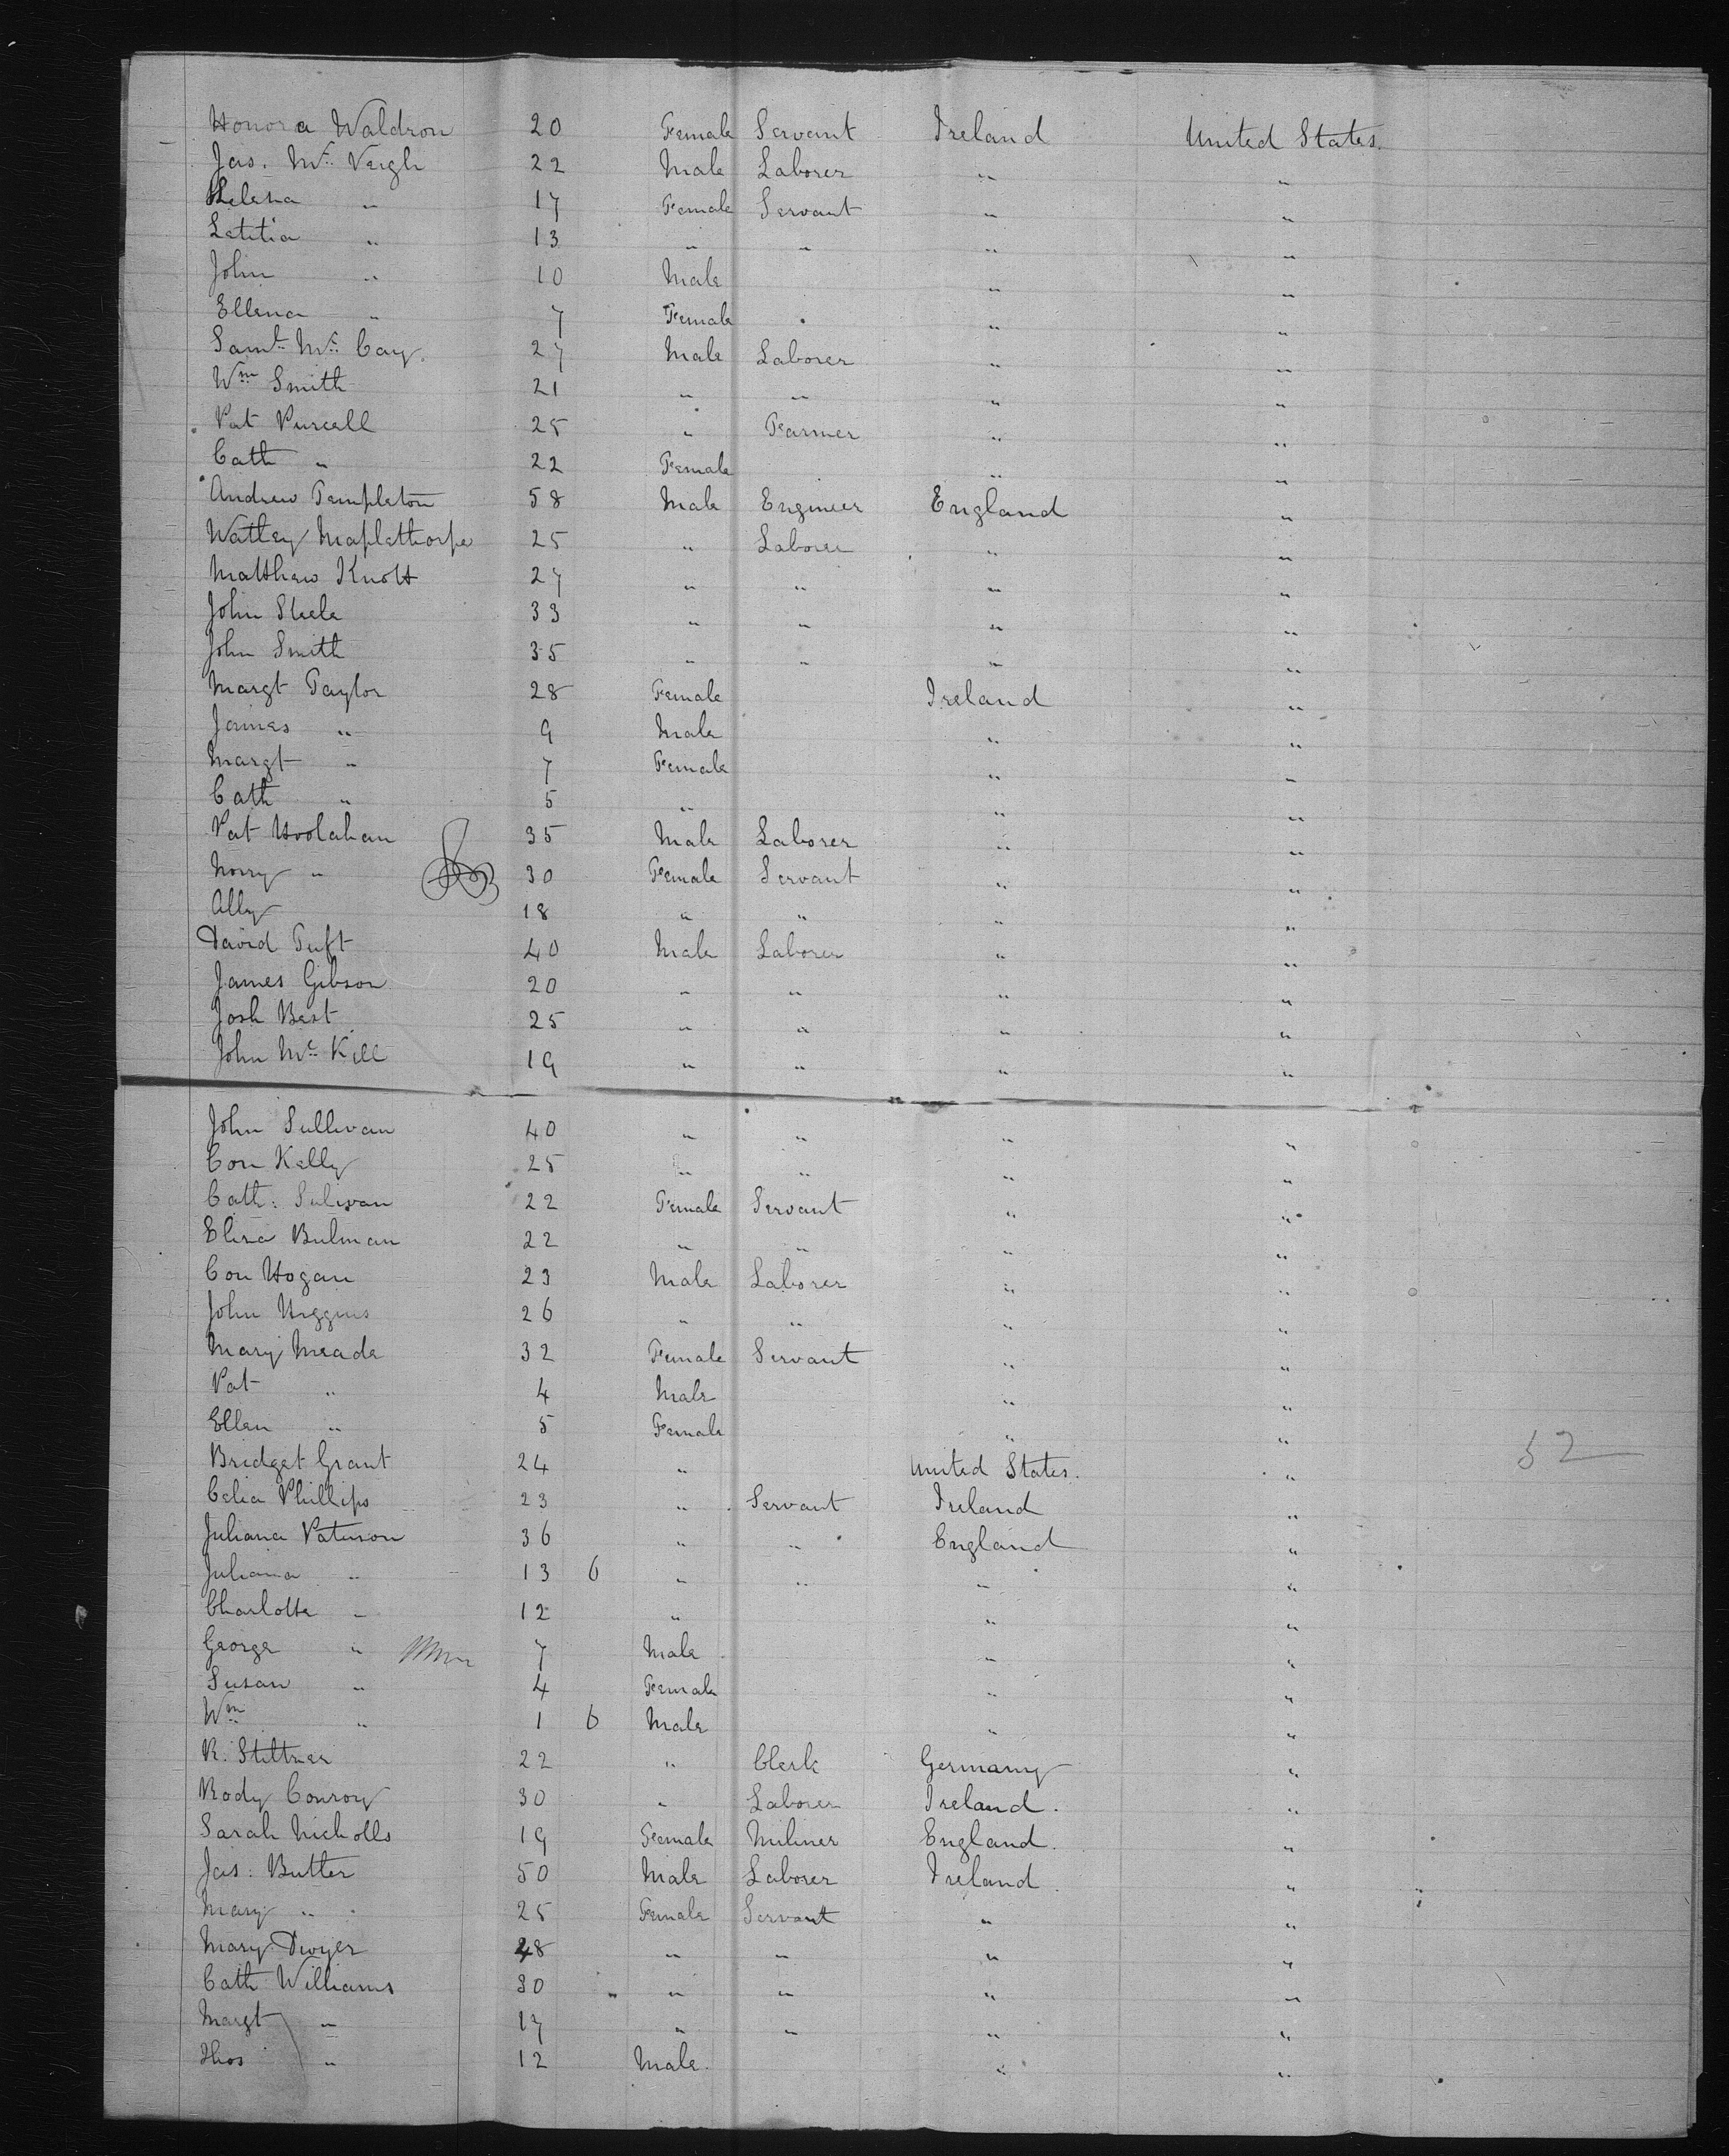 Honora Waldron 20 Female Servant Ireland United States.
Jas. Mc Veigh 22 Male Laborer " "
Helena " 17 Female Servant " "
Letitia " 13 " " " "
John " 10 Male " "
Ellena " 7 Female " "
Saml Mc Cay. 27 Male Laborer " "
Wm Smith 21 " " " "
Pat Purcell 25 " Farmer " "
Cath " 22 Female " "
Andrew Templeton 58 Male Engineer England "
Watley Maplethorpe 25 " Laborer " "
Matthew Knott 27 " " " "
John Steele 33 " " " "
John Smith 35 " " " "
Margt Taylor 28 Female Ireland "
James " 9 Male " "
Margt " 7 Female " "
Cath " 5 " " "
Pat Hoolahan 35 Male Laborer " "
Norry " 30 Female Servant " "
Ally 18 " " " "
David Tuft 40 Male Laborer " "
James Gibson 20 " " " "
Josh Best 25 " " " "
John Mc Kill 19 " " " "
John Sullivan 40 " " " "
Con Kelly 25 " " " "
Cath: Sulivan 22 Female Servant " "
Eliza Bulman 22 " " " "
Con Hogan 23 Male Laborer " "
John Higgins 26 " " " "
Mary Meade 32 Female Servant " "
Pat " 4 Male " "
Ellen " 5 Female " "
52
Bridget Grant 24 " United States. "
Celia Phillips 23 " Servant Ireland "
Juliana Paterson 36 " " England "
Juliana " 13 6 " " " "
Charlotte " 12 " " "
George " 7 Male " "
Susan " 4 Female " "
Wm " 1 6 Male " "
R. Stiltner 22 " Clerk Germany "
Rody Conroy 30 " Laborer Ireland. "
Sarah Nicholls 19 Female Miliner England. "
Jas: Butler 50 Male Laborer Ireland. "
Mary " 25 Female Servant " "
Mary Dwyer 48 " " " "
Cath Williams 30 " " " "
Margt " 17 " " " "
Thos " 12 Male. " "